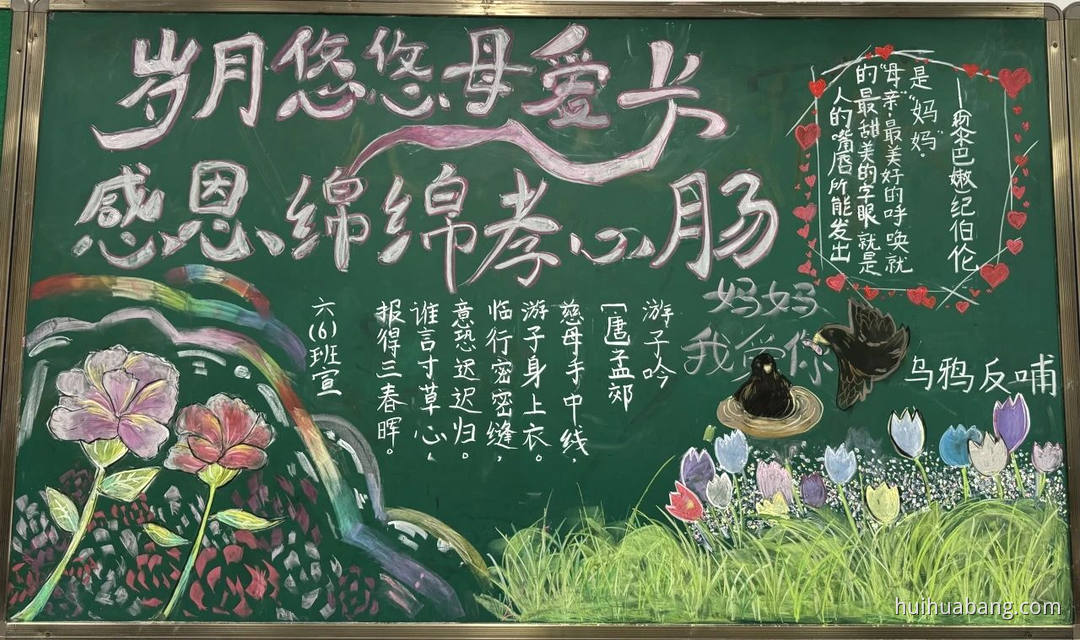 岁月悠悠母爱长
感恩绵绵孝心肠
人的嘴唇所能发出
的最甜美的字眼就是
“母亲”最美好的呼唤就
是“妈妈”.
——(黎巴嫩)纪伯伦
妈妈
我爱你
乌鸦反哺
游子吟
[唐孟郊
慈母手中线,
游子身上衣。
临行密密缝,
意恐迟迟归。
谁言寸草心,
报得三春晖。
六(6)班宣
huihuabang.com